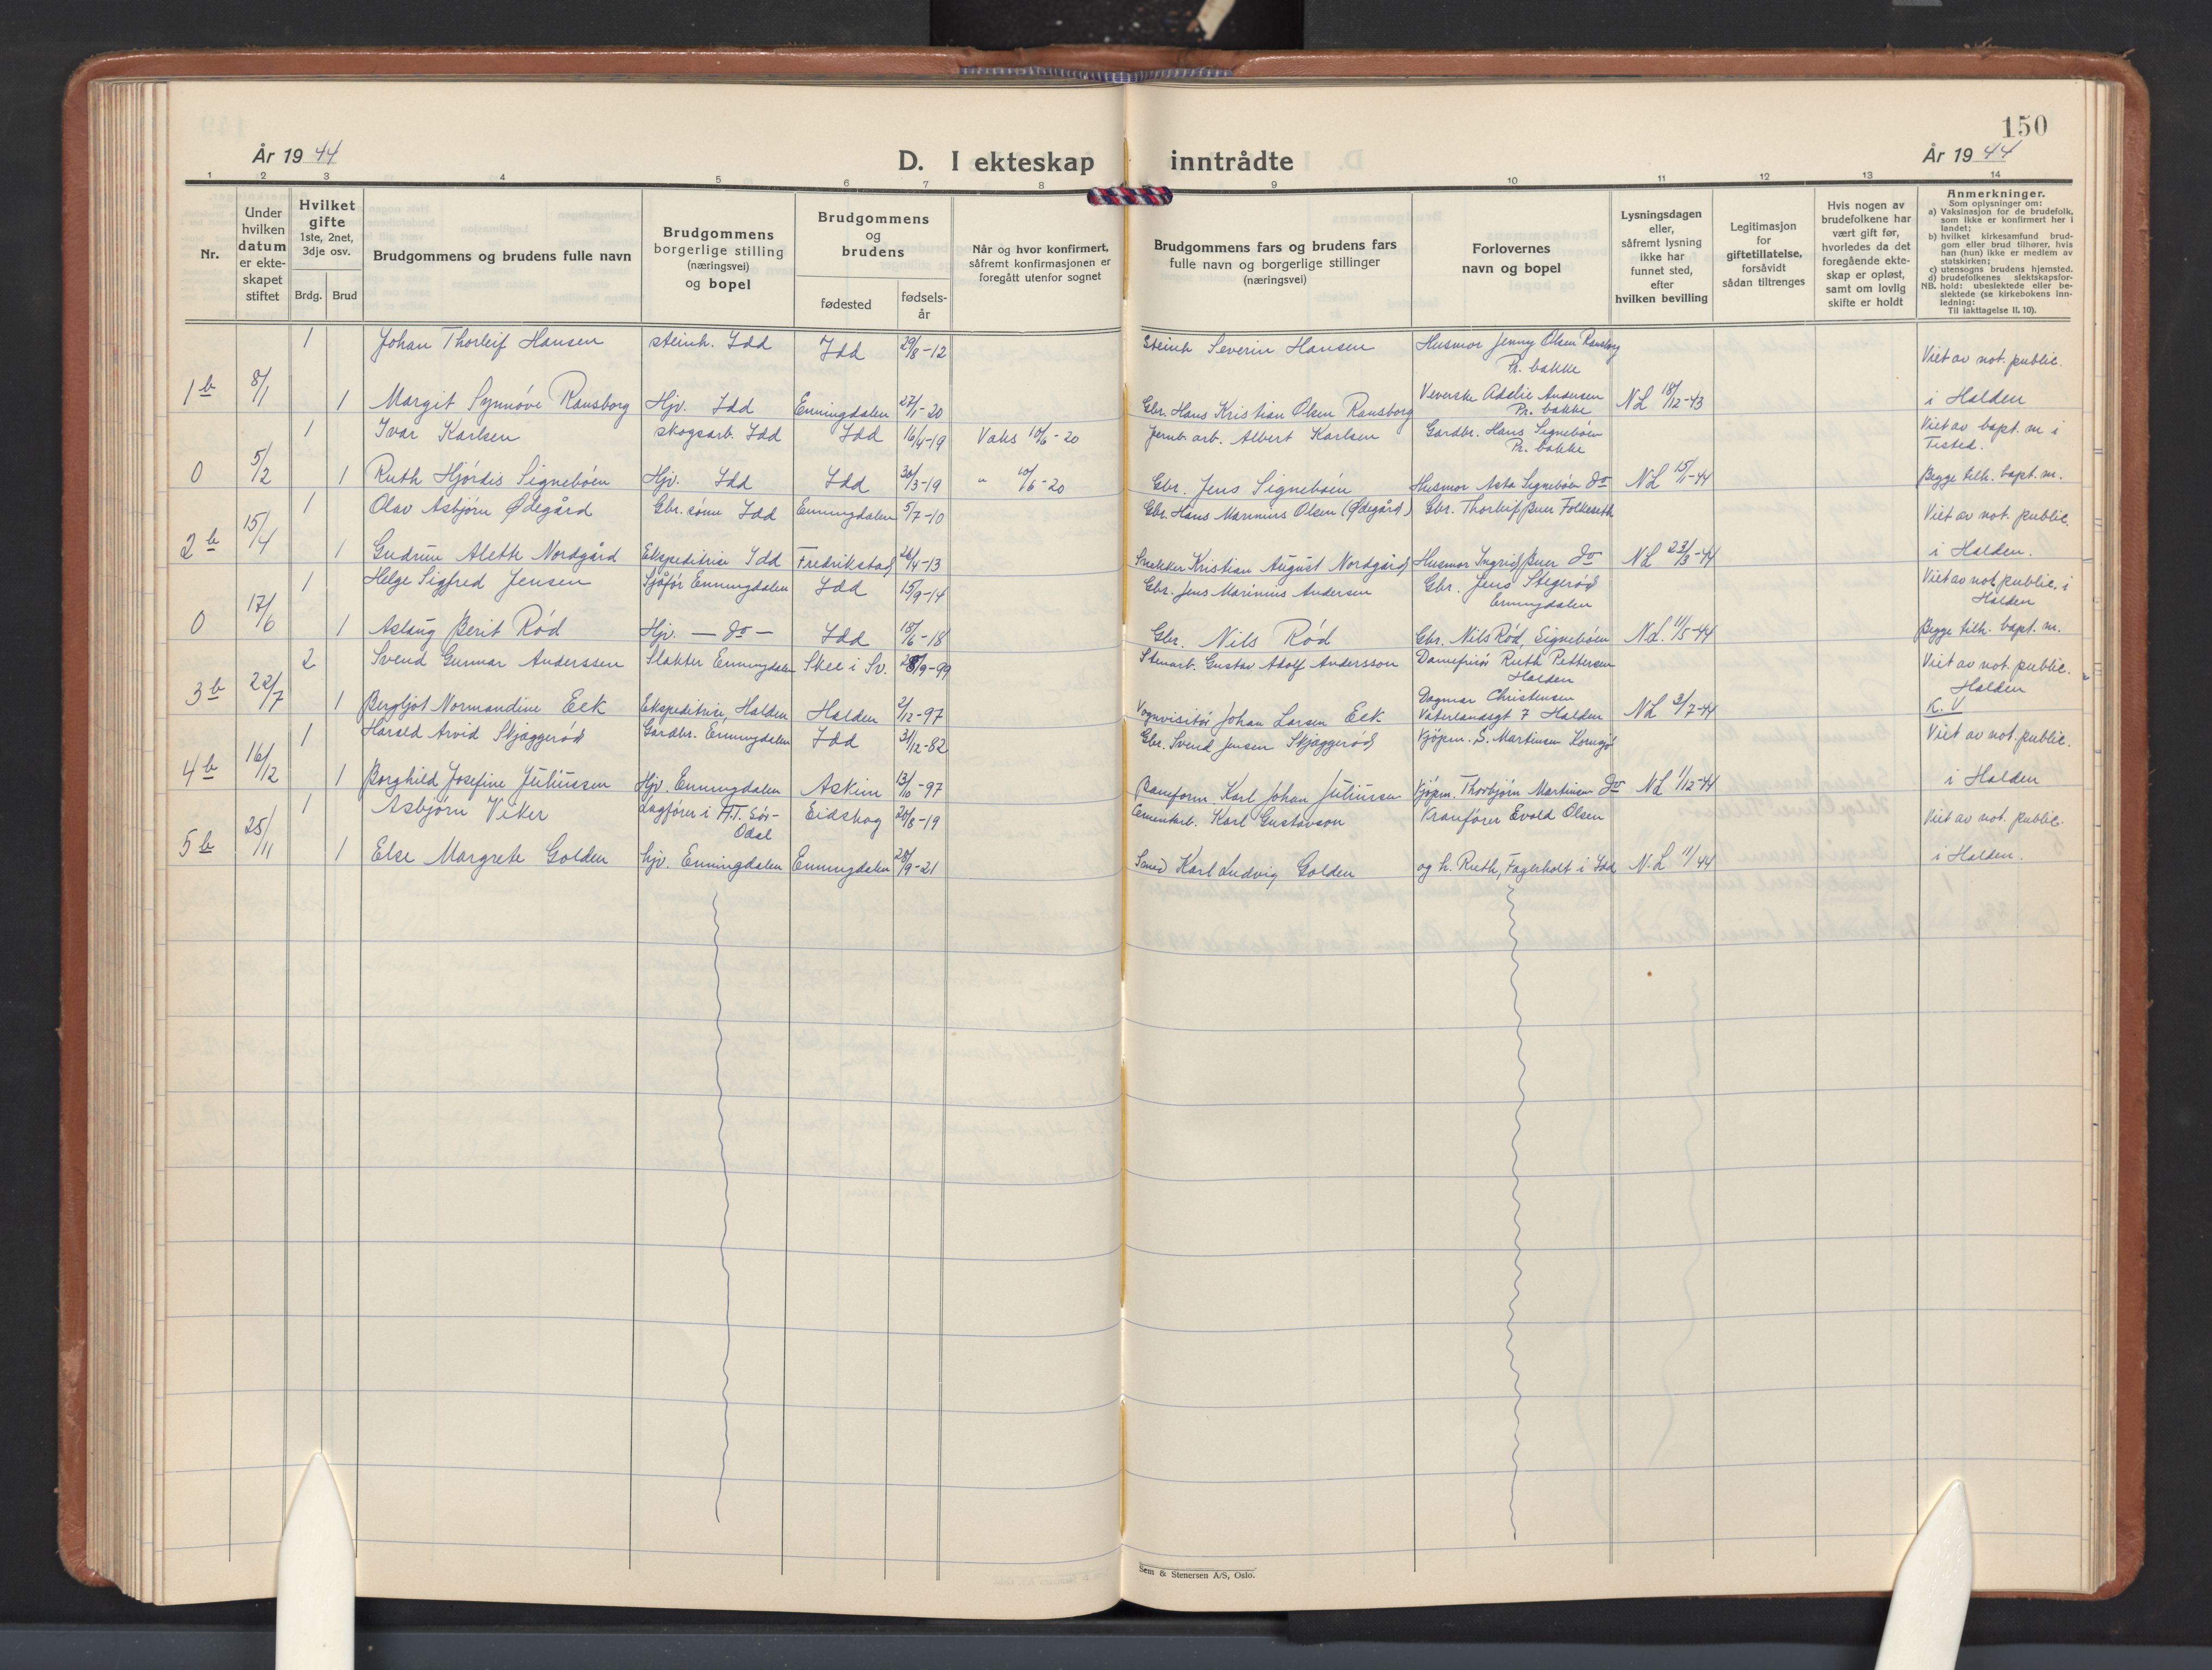 150
År 19 44
D. I ekteskap inntrådte
År 19 44
1 2 3 4 5 6 7 8 9 10 11 12 13 14
Nr.
Under hvilken datum er ekte-skapet stiftet
Hvilket gifte 1ste, 2net, 3dje osv.
Brdg. Brud
Brudgommens og brudens fulle navn
Brudgommens borgerlige stilling (næringsvei) og bopel
Brudgommens og brudens
fødested
fødsels-år
Når og hvor konfirmert, såfremt konfirmasjonen er foregått utenfor sognet
Brudgommens fars og brudens fars fulle navn og borgerlige stillinger (næringsvei)
Forlovernes navn og bopel
Lysningsdagen eller, såfremt lysning ikke har funnet sted, efter hvilken bevilling
Legitimasjon for giftetillatelse, forsåvidt sådan tiltrenges
Hvis nogen av brudefolkene har vært gift før, hvorledes da det foregående ekte-skap er opløst, samt om lovlig skifte er holdt
Anmerkninger.
Som oplysninger om:
a) Vaksinasjon for de brudefolk, som ikke er konfirmert her i landet;
b) hvilket kirkesamfund brud-gom eller brud tilhører, hvis han (hun) ikke er medlem av statskirken;
c) utensogns brudens hjemsted.
d) brudefolkenes slektskapsfor-hold: ubeslektede eller be-slektede (se kirkebokens inn-ledning:
NB.
Til iakttagelse II. 10).
1 Johan Thorleif Hansen steinh. Idd Idd 29/8-12 Steinh Severin Hansen Husmor Jenny Olsen Ransborg Pr. bakke Viet av not. public.
1 b 8/1 1 Margit Synnöve Ransborg Hjv. Idd Enningdalen 27/1-20 Gbr. Hans Kristian Olsen Ransborg Veverske Adelie Andersen Pr. bakke NL 18/12-43 i Halden
1 Ivar Karlsen skogsarb. Idd Idd 16/4-19 Vaks 10/6-20 Jernb. arb. Albert Karlsen Gardbr. Hans Signebøen Pr. bakke Viet av bapt. m i Tisted.
0 5/2 1 Ruth Hjördis Signebøen Hjv. Idd Idd 30/3-19 " 10/6-20 Gbr. Jens Signebøen Husmor Asta Signebøen do NL 15/1-44 Begge tilh. bapt. m.
1 Olav Asbjörn Ødegård Gbr. sønn Idd Enningdalen 5/7-10 Gbr. Hans Marinius Olsen (Ødegård) Gbr. Thorleif Buer Folkeseth Viet av not. public.
2 b 15/4 1 Gudrun Aleth Nordgård Ekspeditrise Idd Fredrikstad 26/4-13 Snekker Kristian August Nordgård Husmor Ingrid Buer do NL 23/3-44 i Halden.
1 Helge Sigfred Jensen Sjåför Enningdalen Idd 15/9-14 Gbr. Jens Marinius Andersen Gbr. Jens Stegerød Enningdalen Viet av not public. i Halden
0 17/6 1 Aslaug Berit Rød Hjv. — do — Idd 18/6-18 Gbr. Nils Rød Gbr. Nils Rød, Signebøen N.L. 11/5-44 Begge tilh. bapt. m.
2 Svend Gunnar Anderssen Slakter Enningdalen Skee i Sv. /9-99 Stenarb. Gustav Adolf Andersson Damefrisör Ruth Pettersen Halden Viet av not. public. Halden
3 b 22/7 1 Bergljot Normandine Eek Ekspeditrise, Halden Halden 2/12-97 Vognvisitör Johan Larsen Eek Dagmar Christensen Vaterlandsgt 7 Halden NL 3/7-44 K. V
1 Harald Arvid Skjæggerød Gardbr. Enningdalen Idd 31/12-82 Gbr. Svend Jensen Skjæggerød Kjöpm. S. Martinsen Kornsjø Viet av not. public.
4 b 16/12 1 Borghild Josefine Juliussen Hjv. Enningdalen Askim 13/10-97 Baneform. Karl Johan Juliussen Kjöpm. Thorbjörn Martinsen do NL 1/12-44 i Halden
1 Asbjørn Viker Lagförer i A.T. Sör-Odal Eidskog 20/8-19 Cementarb. Karl Gustavson Kranförer Evald Olsen Viet av not. public.
5 b 25/11 1 Else Margrete Golden hjv. Enningdalen Enningdalen 28/9-21 Smed Karl Ludvig Golden og h. Ruth, Fagerholt i Idd N.L 11/44 i Halden.
Sem & Stenersen A/S, Oslo.